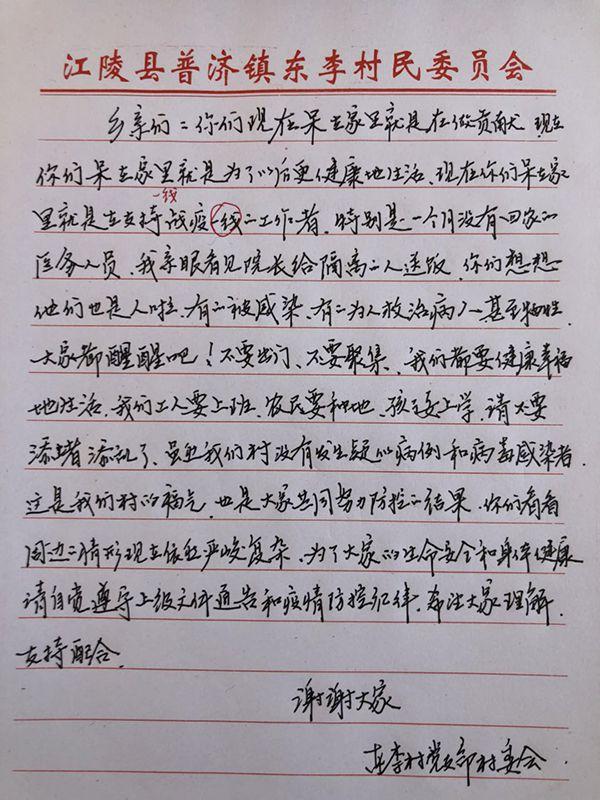 江陵县普济镇东李村民委员会
乡亲们：你们现在呆在家里就是在做贡献 现在
你们呆在家里就是为了以后更健康地生活、现在你们呆在家
一线
里就是在支持战疫一线的工作者，特别是一个月没有回家的
医务人员，我亲眼看见院长给隔离的人送饭，你们想想
他们也是人啦，有的被感染、有的为人救治病人甚至牺牲
大家都醒醒吧！不要出门、不要聚集、我们都要健康幸福
地生活，我们工人要上班，农民要种地、孩子要上学，请不要
添堵添乱了、虽然我们村没有发生疑似病例和病毒感染者
这是我们村的福气，也是大家共同努力防控的结果，你们看看
周边的情形现在依然严峻复杂，为了大家的生命安全和身体健康
请自觉遵导上级文件通告和疫情防控纪律，希望大家理解，
支持配合。
谢谢大家
东李村党支部村委会